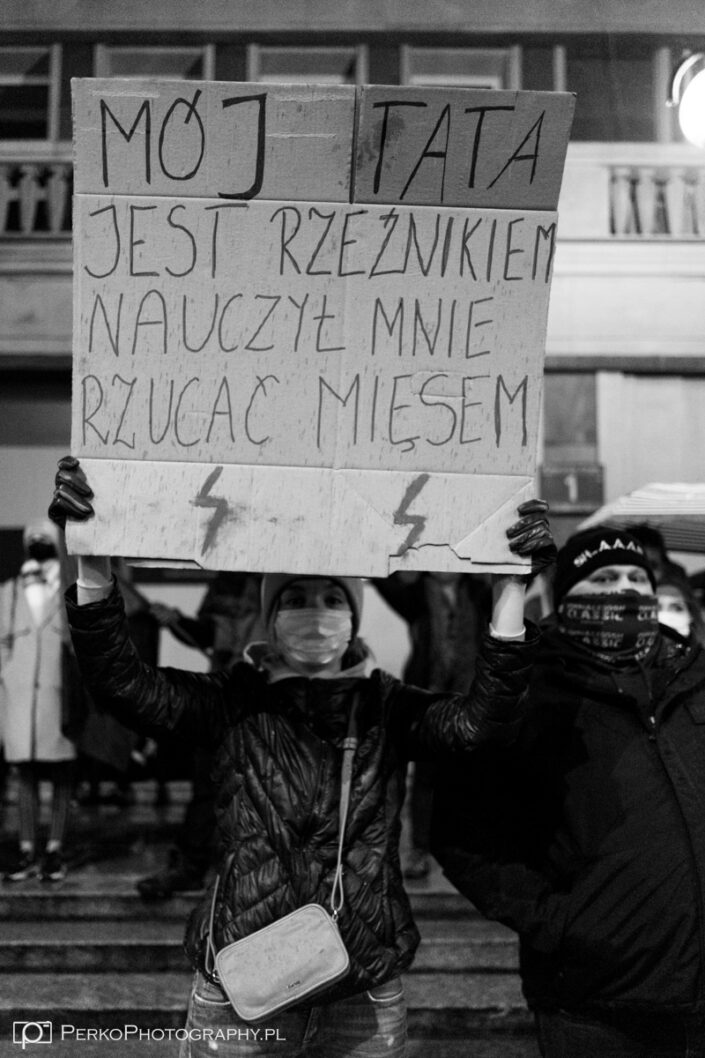 MÓJ TATA
JEST RZEŹNIKIEM
NAUCZYŁ MNIE
RZUCAĆ MIĘSEM
1
SŁAAA
CLASSIC
PERKOPHOTOGRAPHY.PL